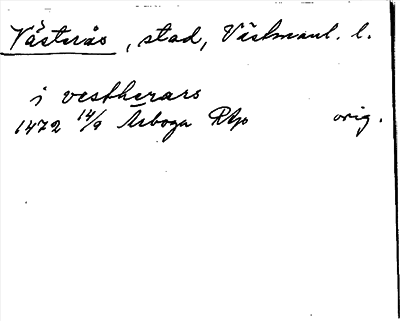 Västerås, stad, Västmanl. l.
i vestherars
1472 14/9 Arboga Rhp orig.